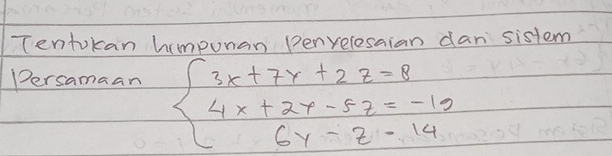 Tentukan himpunan Penyelesaian dari sistem
Persamaan
3x + 7y + 2z = 8
4x + 2y - 5z = -19
6y - z = 14